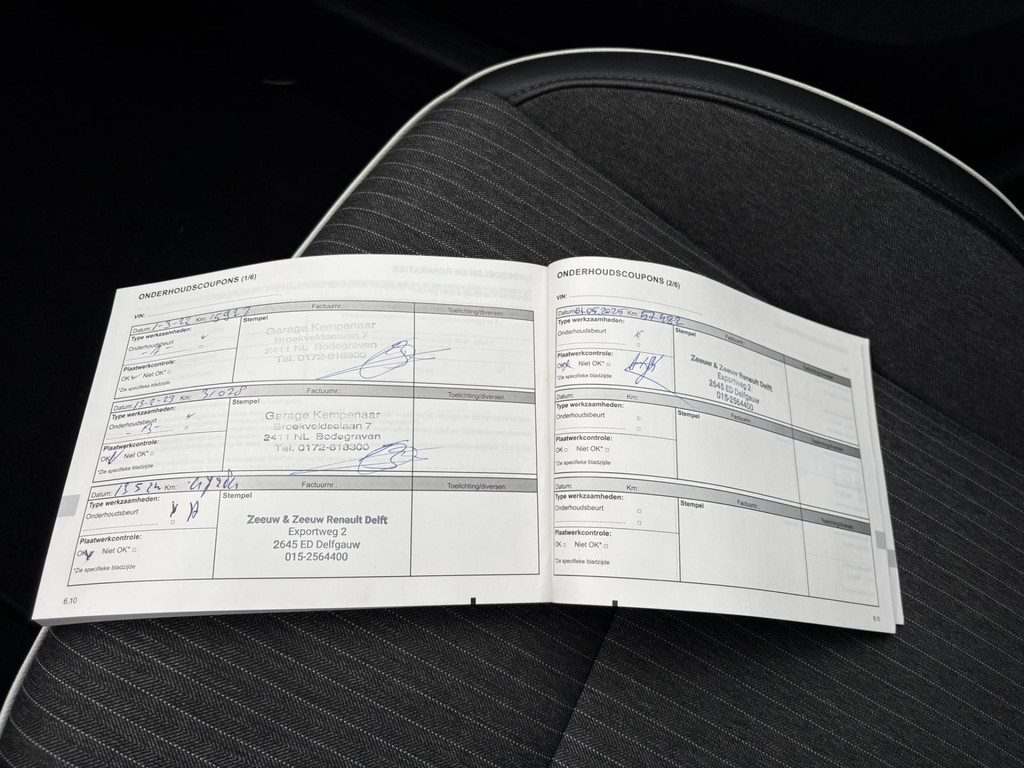 ONDERHOUDSCOUPONS (1/6)
VIN:
Datum: 1-3-22 Km: 15927 Factuurnr.: Toelichting/diversen
Type werkzaamheden: Stempel
Onderhoudsbeurt
Garage Kempenaar
Broekveldselaan 7
2411 NL Bodegraven
Tel. 0172-618300
Plaatwerkcontrole:
OK Niet OK*
*Zie specifieke bladzijde
Datum: 13-2-23 Km: 31028 Factuurnr.: Toelichting/diversen
Type werkzaamheden: Stempel
Onderhoudsbeurt
Garage Kempenaar
Broekveldselaan 7
2411 NL Bodegraven
Tel. 0172-618300
Plaatwerkcontrole:
OK Niet OK*
*Zie specifieke bladzijde
Datum: 13.5.24 Km: Factuurnr.: Toelichting/diversen
Type werkzaamheden: Stempel
Onderhoudsbeurt A
Zeeuw & Zeeuw Renault Delft
Exportweg 2
2645 ED Delfgauw
015-2564400
Plaatwerkcontrole:
OK Niet OK*
*Zie specifieke bladzijde
6.10
ONDERHOUDSCOUPONS (2/6)
VIN:
Datum: 01.05.2025 Km: Factuurnr.: Toelichting/diversen
Type werkzaamheden: Stempel
Onderhoudsbeurt
Zeeuw & Zeeuw Renault Delft
Exportweg 2
2645 ED Delfgauw
015-2564400
Plaatwerkcontrole:
OK Niet OK*
*Zie specifieke bladzijde
Datum: Km: Factuurnr.: Toelichting/diversen
Type werkzaamheden: Stempel
Onderhoudsbeurt
Plaatwerkcontrole:
OK Niet OK*
*Zie specifieke bladzijde
Datum: Km: Factuurnr.: Toelichting/diversen
Type werkzaamheden: Stempel
Onderhoudsbeurt
Plaatwerkcontrole:
OK Niet OK*
*Zie specifieke bladzijde
6.11